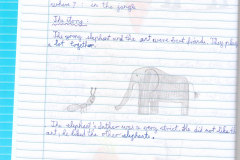 where? in the jungle
The Story
The young elephant and the ant were best friends. They play
a lot together.
The elephant's father was a very strict. He did not like the
ant, he liked the other elephants.